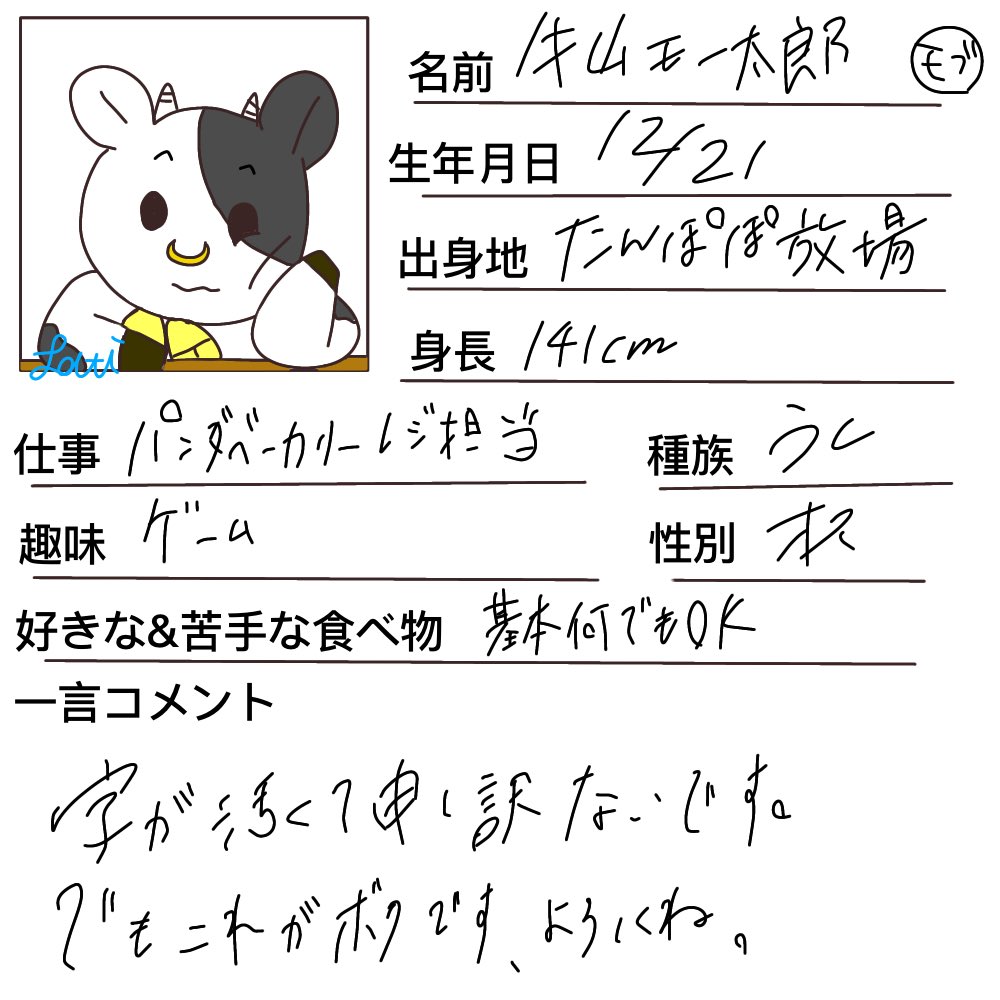 名前 牛山モー太郎 モブ
生年月日 12/21
出身地 たんぽぽ放場
身長 141cm
仕事 パンダベーカリーレジ担当
種族 うし
趣味 ゲーム
性別 オス
好きな&苦手な食べ物 基本何でもOK
一言コメント
字が汚くて申し訳ないです。
でもこれがボクです、よろしくね。
Lauti